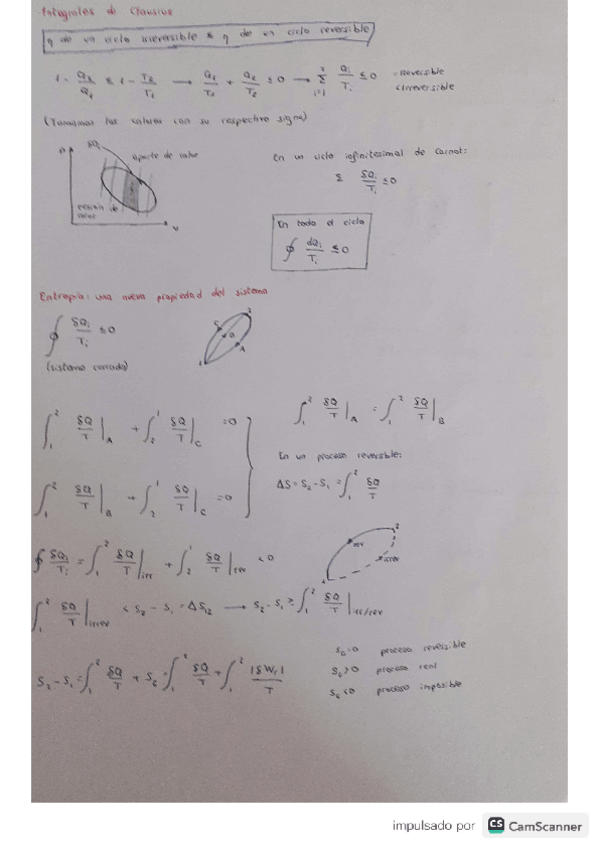 Integrales de Clausius
η de un ciclo irreversible ≤ η de un ciclo reversible
1 - Q₂/Q₁ ≤ 1 - T₂/T₁ → Q₁/T₁ + Q₂/T₂ ≤ 0 → Σ Qᵢ/Tᵢ ≤ 0 = reversible
< irreversible
(Tomamos los valores con su respectivo signo)
P
δQ₁
aporte de calor
cesión de calor
V
En un ciclo infinitesimal de Carnot:
Σ δQᵢ/Tᵢ ≤ 0
En todo el ciclo
∮ dQᵢ/Tᵢ ≤ 0
Entropía: una nueva propiedad del sistema
∮ δQᵢ/Tᵢ ≤ 0
(sistema cerrado)
∫₁² δQ/T |A + ∫₂¹ δQ/T |C = 0
∫₁² δQ/T |B + ∫₂¹ δQ/T |C = 0
∫₁² δQ/T |A = ∫₁² δQ/T |B
En un proceso reversible:
ΔS = S₂ - S₁ = ∫₁² δQ/T
∮ δQᵢ/Tᵢ = ∫₁² δQ/T |irr + ∫₂¹ δQ/T |rev < 0
∫₁² δQ/T |irrev < S₂ - S₁ = ΔS₁₂ → S₂ - S₁ ≥ ∫₁² δQ/T |irr/rev
S₂ - S₁ = ∫₁² δQ/T + SG = ∫₁² δQ/T + ∫₁² |δWf|/T
SG = 0 proceso reversible
SG > 0 proceso real
SG < 0 proceso imposible
impulsado por CS CamScanner